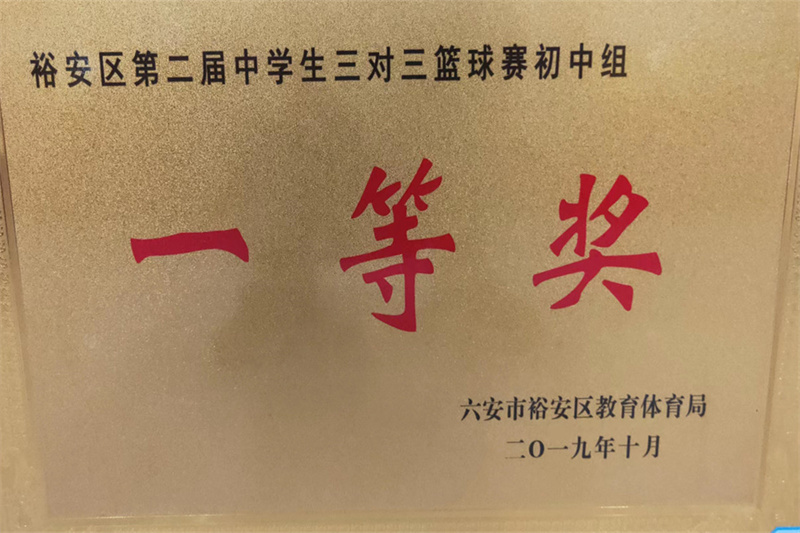 裕安区第二届中学生三对三篮球赛初中组
一等奖
六安市裕安区教育体育局
二O一九年十月